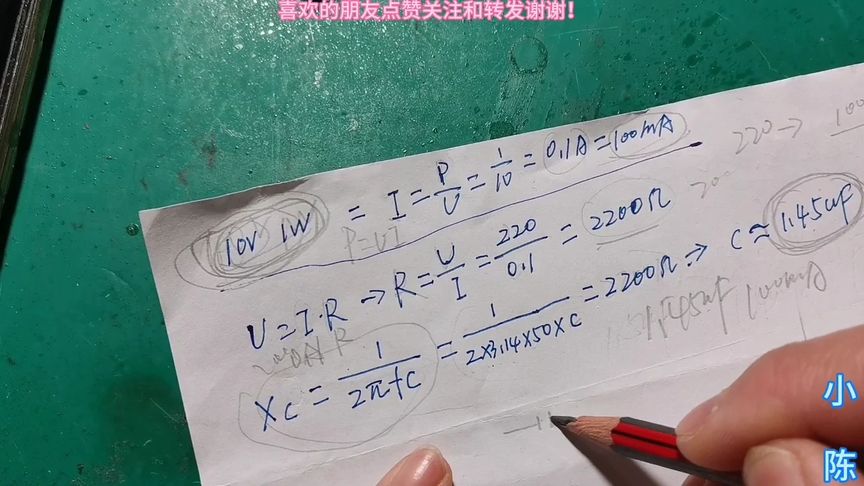 喜欢的朋友点赞关注和转发谢谢！
10V 1W = I = P/U = 1/10 = 0.1A = 100mA
P=UI
220 →
U = I·R → R = U/I = 220/0.1 = 2200Ω
XC = 1/2πfC = 1/2×3.14×50×C = 2200Ω → C ≈ 1.45uF
1.45uF 100mA
小
陈